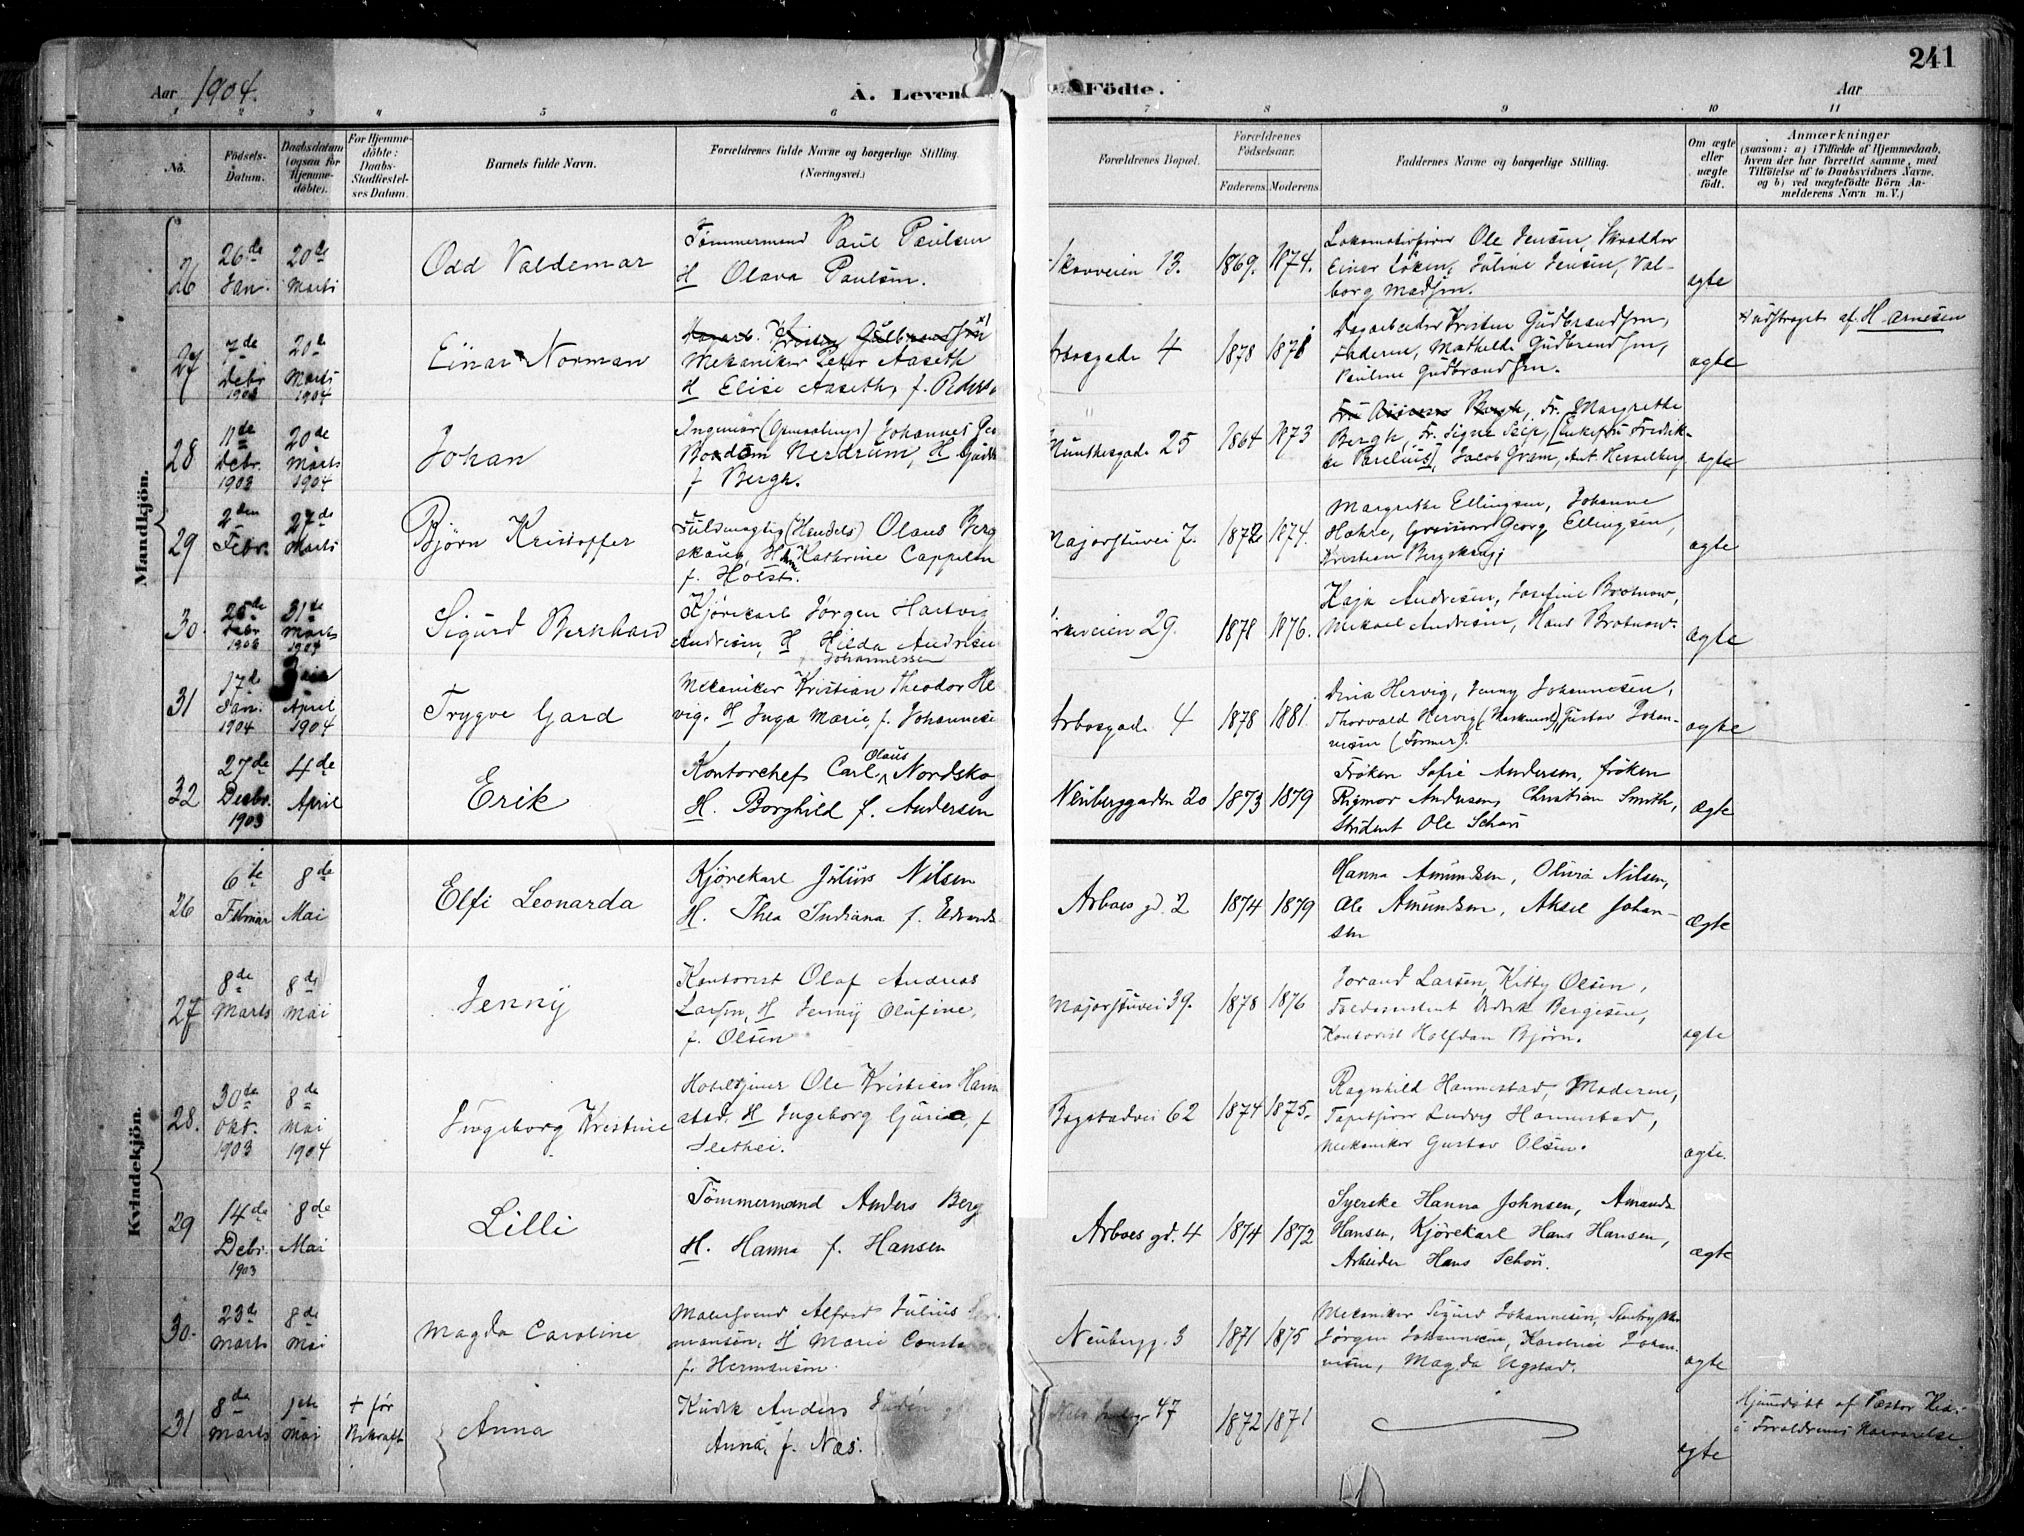 241
Aar 1904.
A. Leven
Födte.
Aar
1 2 3 4 5 6 7 8 9 10 11
No.
Födsels-Datum.
Daabsdatum (ogsaa for Hjemmedöbte).
For Hjemmedöbte: Daabs-Stadfæstelses Datum.
Barnets fulde Navn.
Forældrenes fulde Navne og borgerlige Stilling. (Næringsvei.)
Forældrenes Bopæl.
Forældrenes Födselsaar.
Faderens. Moderens.
Faddernes Navne og borgerlige Stilling.
Om ægte eller uægte födt.
Anmærkninger
(saasom: a) i Tilfælde af Hjemmedaab, hvem der har forrettet samme, med Tilföielse af to Daabsvidners Navne. og b) ved uægtefödte Börn Anmelderens Navn m. V.)
Mandkjön.
26 26de Jan. 20de Marts
Odd Valdemar
Tømmermand Paul Paulsen
H Olava Paulsen.
13. 1869. 1874.
Lokomotivfører Ole Jensen, Skrædder
Einar Løken, Juline Jensen, Valborg Madsen.
ægte
27 7de Debr 1903 20de Marts 1904
Einar Norman
Mekaniker Peter Aaseth
H Elise Aaseth, f.
4 1878
Dagarbeider Kristen Gudbrandsen,
Faderen, Mathilde Gudbrandsen,
Pauline Gudbrandsen.
ægte
af H Arnesen
28 11de Debr. 1903 20de Marts 1904
Johan
Ingeniør (Opmaalings) Johannes
Nerdrum, H
f Bergh.
Munthesgade 25 1864 1873
Fr. Margrethe
Bergh, Fr. Signe Seip, Jacob Gram, Ant. Hesselberg
ægte
29 2den Febr. 27de Marts
Björn Kristoffer
Fuldmægtig (Handels) Olaus Berg
skaug, H Kathrine Cappelen
f. Holst.
Majorstuvei 7. 1872 1874.
Margrethe Ellingsen, Johanne
Georg Ellingsen,
Kristian Bergskaug
ægte
30. 25de Debr 1903 31de Marts 1904
Sigurd Bernhard
Kjørekarl Jørgen Hartvig
Andresen, H Hilda Andresen
Johannessen
29. 1878 1876.
Kaja Andresen, Josefine Brotnow,
Mikael Andresen, Hans Brotnow.
ægte
31 17de Jan. 1904 April 1904
Trygve Gard
Mekaniker Kristian Theodor He
vig. H Inga Marie f. Johannese
4 1878 1881.
Dina Hervig, Jenny Johannesen,
Thorvald Hervig Gustav Johannesen (Former).
ægte
32 27de Decbr. 1903 4de April
Erik
Kontorchef Carl Olaus Nordsko
H. Borghild f. Andersen
Neuberggaden 20 1873 1879
Frøken Sofie Andersen, frøken
Rigmor Andersen, Christian Smith,
Student Ole Schøu
Ægte
Kvindekjön.
26 6te Februar 8de Mai
Elfi Leonarda
Kjörekarl Julius Nilsen
H. Thea Indiana f. Edvards
Arboes gd. 2 1874 1879
Hanna Amundsen, Olivia Nilsen,
Ole Amundsen, Aksel Johansen
Ægte
27 8de Marts 8de Mai
Jenny
Kontorist Olaf Andreas
Larsen, H Jenny Olufine,
f. Olsen
Majorstuvei 39. 1878 1876
Larsen, Kitty Olsen,
Bergesen,
Kontorist Halfdan Bjørn.
ægte
28. 30de Okt. 1903 8de Mai 1904
Ingeborg Kristine
Ole Kristian Hann
stad. H Ingeborg f
Slethei.
Bogstadvei 62 1874 1875.
Ragnhild Hannestad, Moderen,
Ludvig Hannestad,
Mekaniker Gustav Olsen.
ægte.
29 14de Debr. 1903 8de Mai
Lilli
Tömmermand Anders Berg
H. Hanna f. Hansen
Arboes gd. 4 1874 1872
Syerske Hanna Johnsen, Amanda
Hansen, Kjörekarl Hans Hansen,
Arbeider Hans Schøu.
Ægte
30. 23de Marts 8de Mai
Magda Caroline
Malersvend Alfred Julius
mansen, H Marie
f. Hermansen.
Neubergg. 3 1871 1875
Mekaniker Sigurd Johannesen,
Jørgen Johannesen, Karoline Johannesen, Magda Ugstad.
ægte
31 8de Marts Mai + før Bekræft.
Anna
Kudsk Anders
Anna, f. Næs.
47 1872 1871
ægte
Hjemdøbt af Pastor
i Forældrenes Nærværelse.